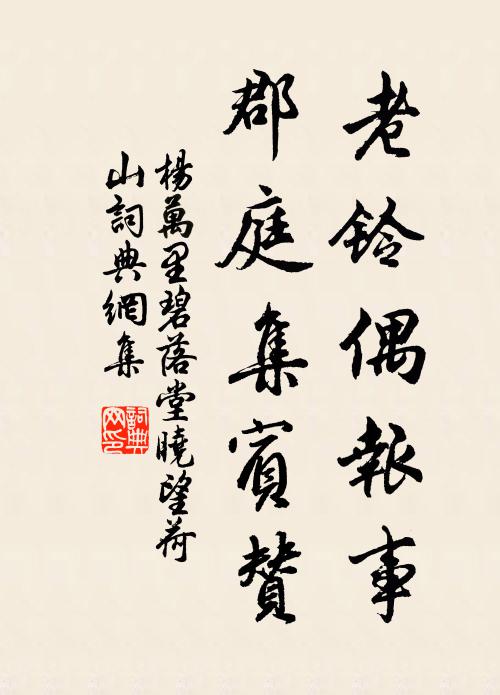 老鈴偶報事
郡庭集賓贊
楊萬里碧落堂曉望荷
山詞典網集
詞典
网印